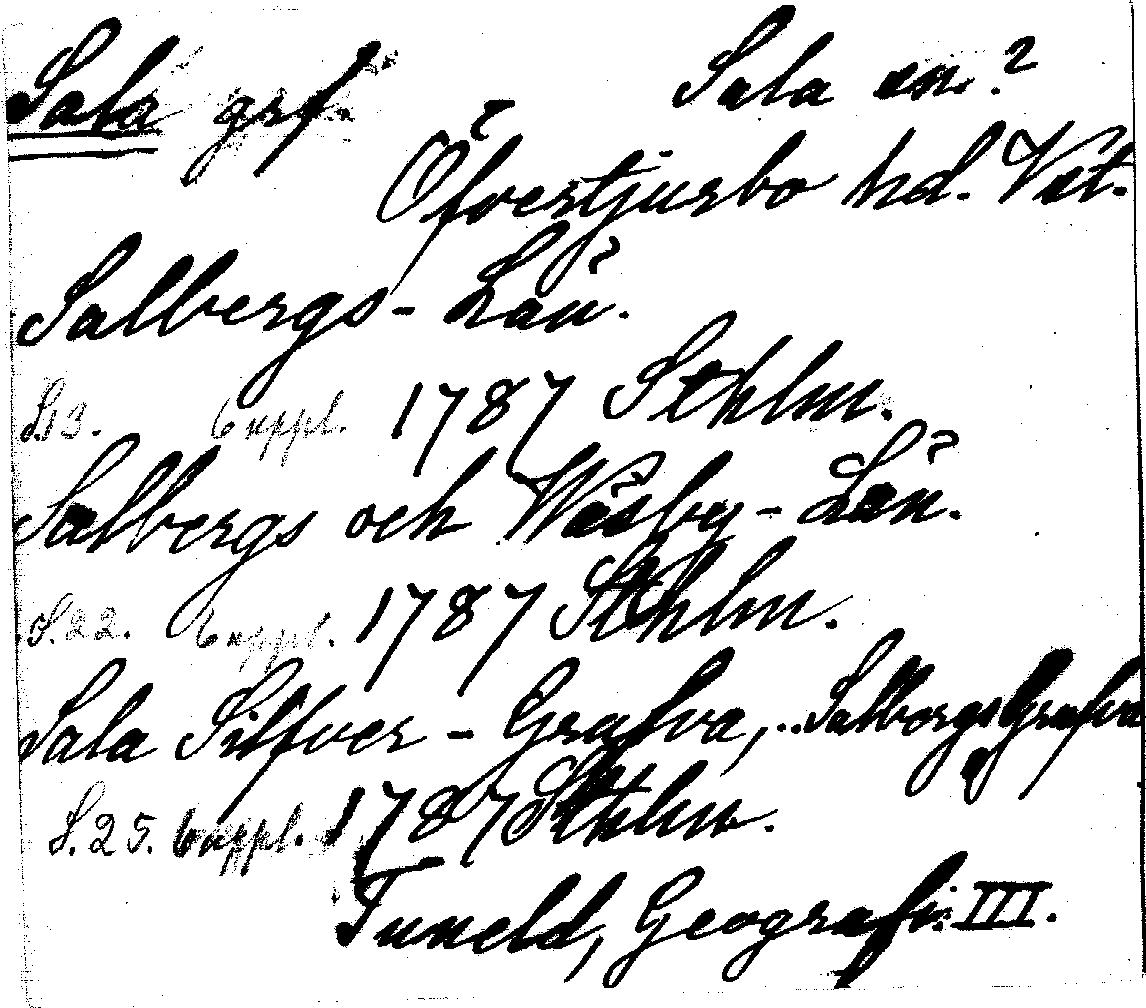 Sala grf. Sala sn.?
Öfvertjurbo hd. Vstm.
Salbergs-Län.
S. 13. 6 uppl. 1787 Sthlm.
Salbergs och Wäsby-Län.
S. 22. 6 uppl. 1787 Sthlm.
Sala Silfver-Grufva, Salbergs Grufva
S. 25. 6 uppl. 1787 Sthlm.
Tuneld, Geografi III.